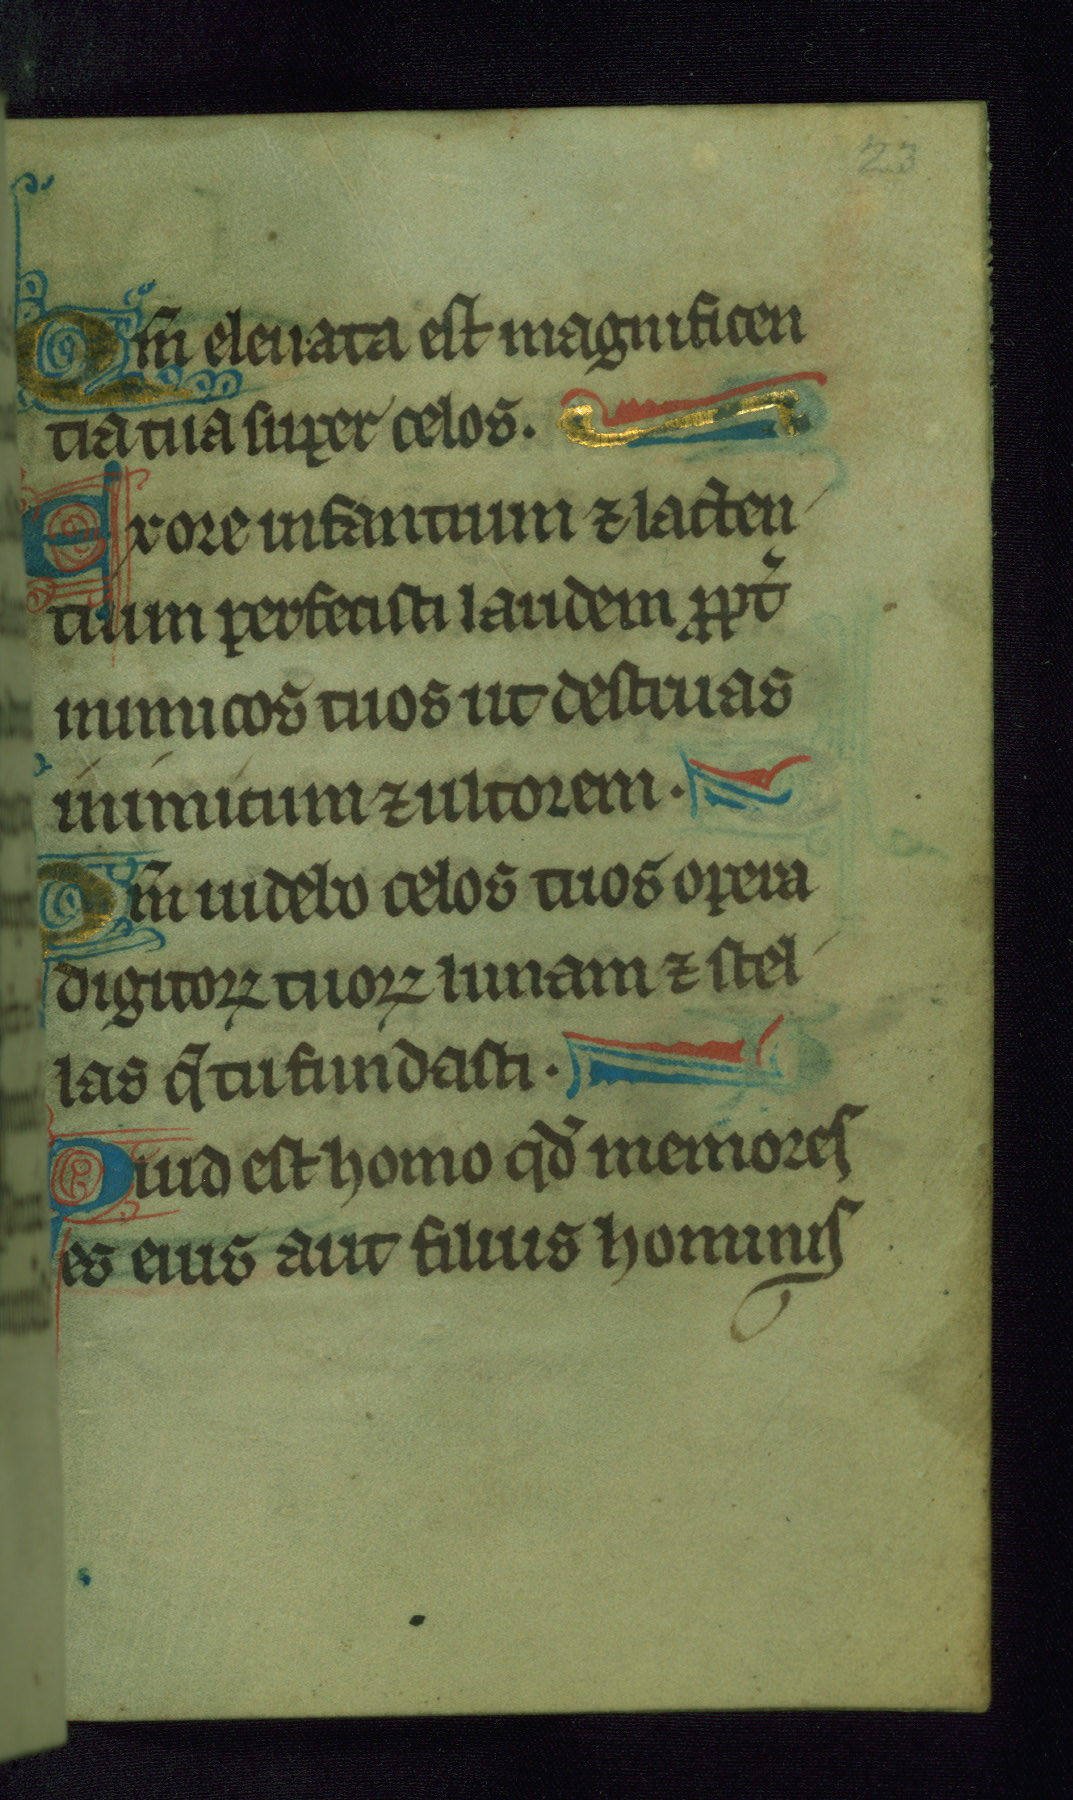 23
Qm̄ eleuata est magnificen
tia tua super celos.
Exore infantium ⁊ lacten
tium perfecisti laudem ꝓpt̄
inimicos tuos ut destruas
inimicum ⁊ ultorem.
Qm̄ uidebo celos tuos opera
digitoꝝ tuoꝝ lunam ⁊ stel
las q̄ tu fundasti.
Quid est homo qd̄ memores
es eius aut filius hominis